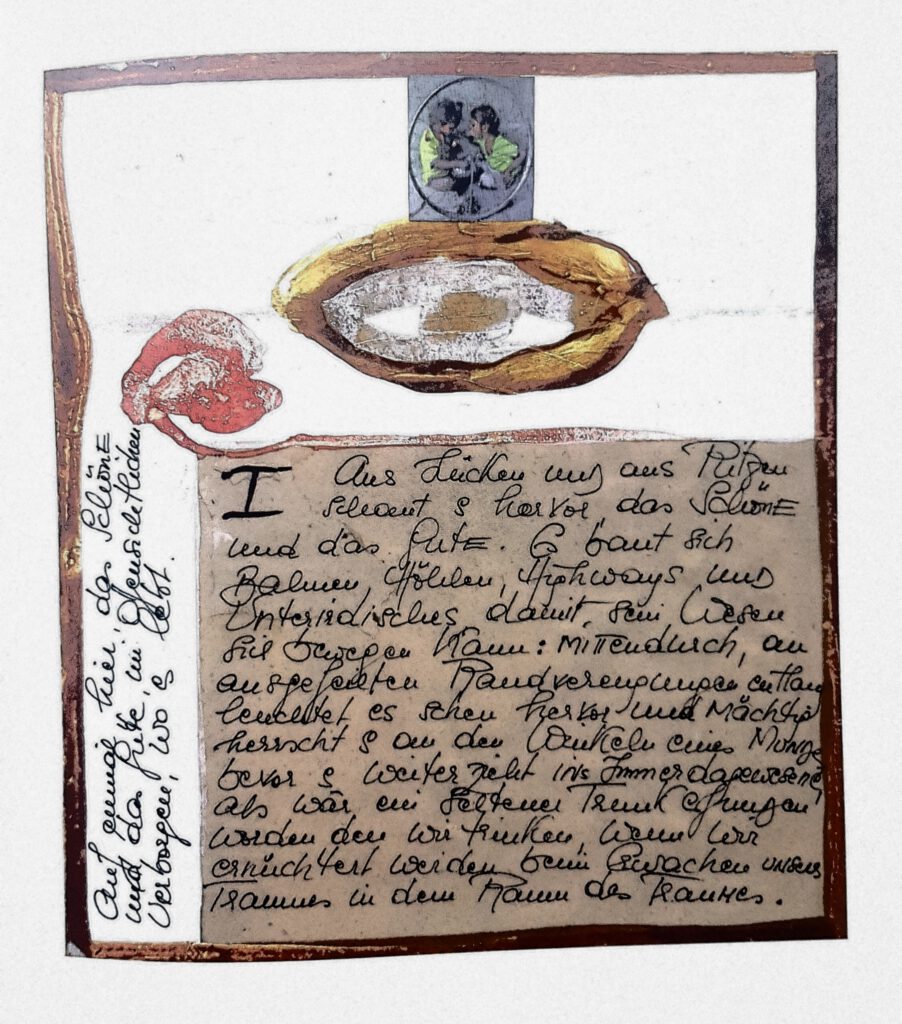 I
Aus Lücken und aus Ritzen
schaut s hervor, das SchönE
und das GutE. Es baut sich
Bahnen, Höhlen, Highways und
Unterirdisches, damit sein Wesen
sich bewegen Kann: MiTTendurch, an
ausgefeilten Randverengungen entlang
leuchtet es schon hervor und Mächtig
herrscht s an den Winkeln eines Mundes
bevor s weiter zieht ins Immerdagewesene,
als wär ein seltener Trunk
worden den wir trinken, wenn wir
ernüchtert werden beim Erwachen unseres
Traumes in dem Raum des Raumes.
Auf einmal hier, das SchönE
und das Gute, im Offensichtlichen
Verborgen, wo s lebt.